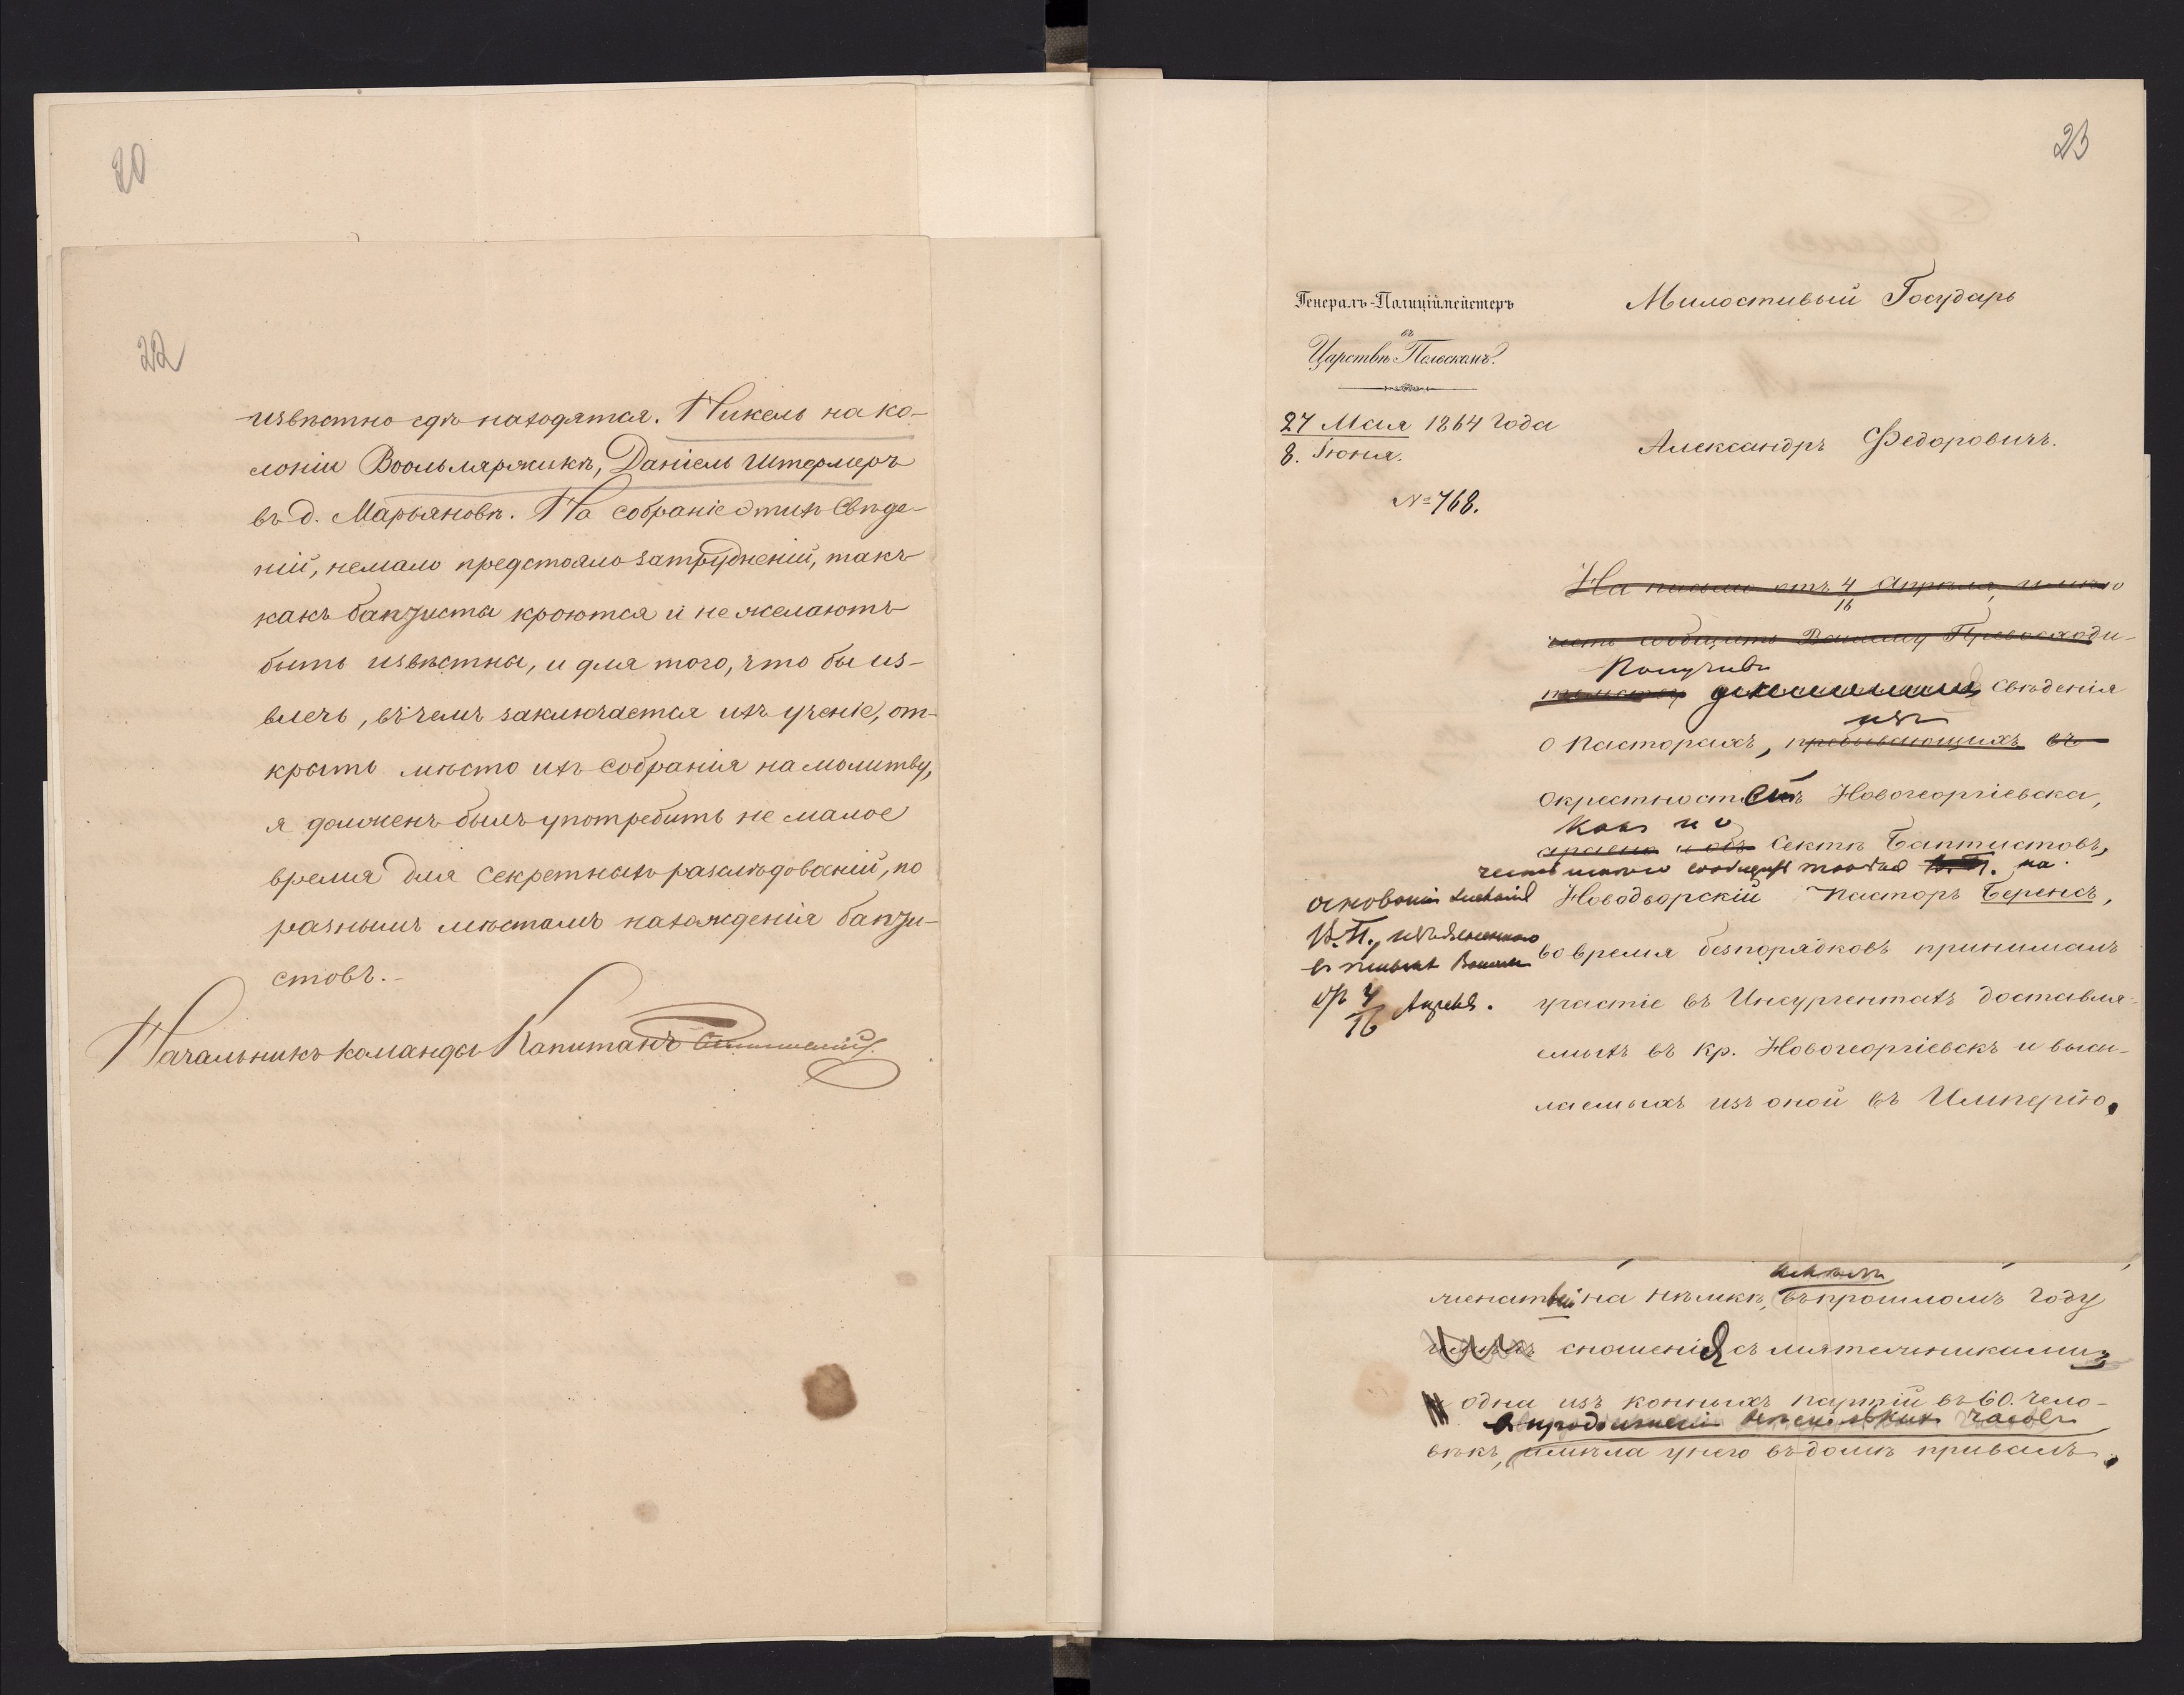 20
22
извѣстно гдѣ находятся. Никель на ко-
лоніи Воольмяржикѣ, Даніель Штермеръ
въ д. Марьяновѣ. На собраніе этихъ Свѣде-
ній, немало предстояло затрудненій, такъ
какъ баптисты кроются и не желаютъ
быть извѣстны, и для того, что бы из-
влечь, въ чемъ заключается ихъ ученіе, от-
крыть мѣсто ихъ собранія на молитву,
я долженъ былъ употребить не малое
время для секретныхъ разслѣдованій, по
разнымъ мѣстамъ нахожденія бапти-
стовъ.-
Начальникъ команды Капитанъ
23
Генералъ-Полиціймейстеръ
въ
Царствѣ Польскомъ.
27 Мая 1864 года
8. Іюня.
№ 768.
Милостивый Государь
Александръ Федоровичъ.
На письмо отъ 4 апрѣля, имѣю
16
честь сообщить Вашему Превосходи-
Получивъ
тельству свѣденія
о пасторахъ, пребывающихъ въ
изъ
окрестностей Новогеоргіевска,
какъ и о
и объ сектѣ Баптистовъ,
честь имѣю сообщить на
основаніи
В. П.,
въ письмѣ
отъ 4/16 Апрѣля.
Новодворскій пасторъ Беренсъ,
во время безпорядковъ принималъ
участіе въ Инсургентахъ доставля-
емыхъ въ кр. Новогеоргіевскъ и высы-
лаемыхъ изъ оной въ Имперію.
женатый на нѣмкѣ, въ прошломъ году
имѣлъ сношенія съ мятежниками;
одна изъ конныхъ партій въ 60. чело-
въ продолженіи нѣсколькихъ часовъ
вѣкъ, имѣла у него въ домѣ привалъ.